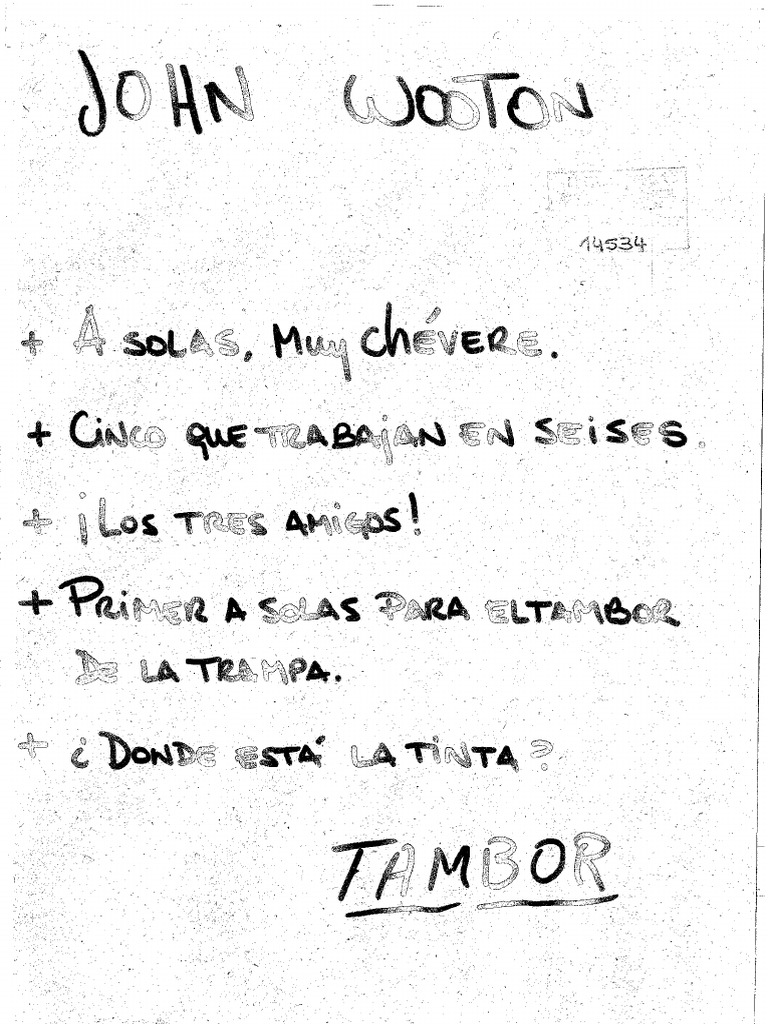 JOHN WOOTON
14534
+ A SOLAS, MUY CHÉVERE.
+ CINCO QUE TRABAJAN EN SEISES.
+ ¡LOS TRES AMIGOS!
+ PRIMER A SOLAS PARA EL TAMBOR
DE LA TRAMPA.
+ ¿DONDE ESTÁ LA TINTA?
TAMBOR